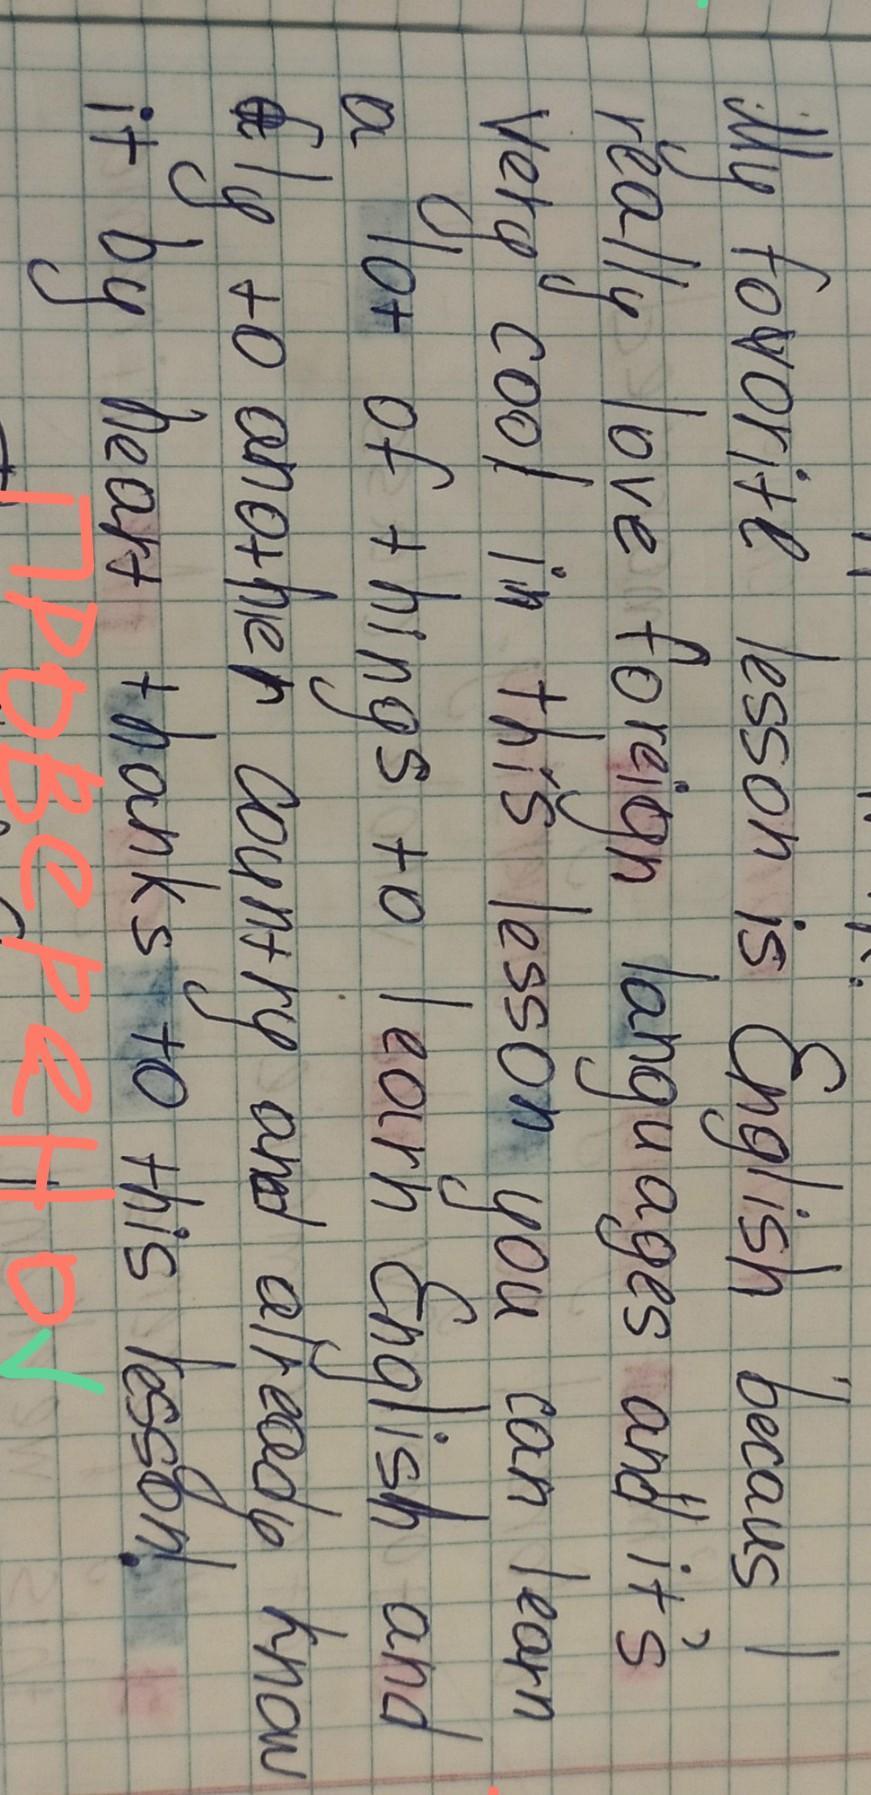 My favorite lesson is English becaus I
really love foreign languages and it's
very cool in this lesson you can learn
a lot of things to learn English and
fly to another country and already know
it by heart thanks to this lesson.
проверено